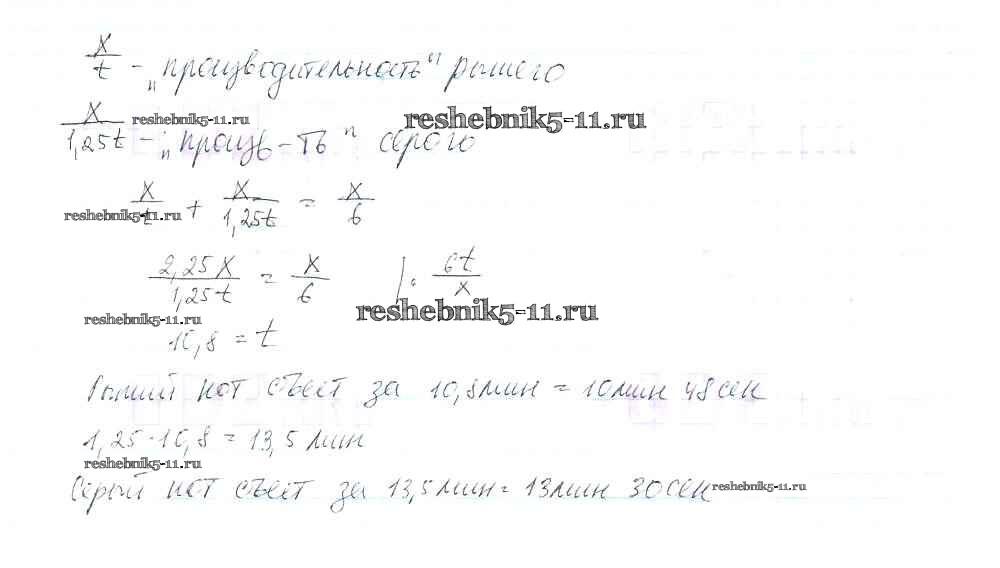 x/t - "производительность" рыжего
reshebnik5-11.ru
reshebnik5-11.ru
x/1,25t - "произв-ть" серого
x/t + x/1,25t = x/6
reshebnik5-11.ru
2,25x/1,25t = x/6 | · 6t/x
reshebnik5-11.ru
reshebnik5-11.ru
10,8 = t
Рыжий кот съест за 10,8мин = 10мин 48сек
1,25·10,8 = 13,5 мин
reshebnik5-11.ru
Серый кот съест за 13,5мин = 13мин 30сек
reshebnik5-11.ru